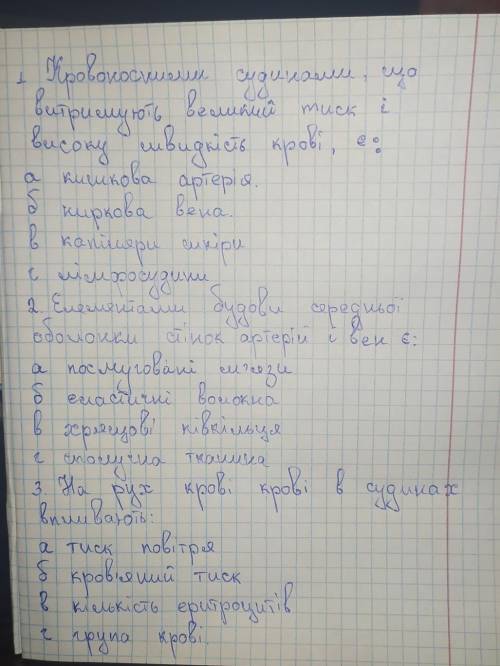 1 Кровоносними судинами, що
витримують великий тиск і
високу швидкість крові, є:
а кишкова артерія.
б ниркова вена.
в капіляри шкіри
г лімфосудини
2. Елементами будови середньої
оболонки стінок артерій і вен є:
а посмуговані мʼязи
б еластичні волокна
в хрящові півкільця
г сполучна тканина
3. На рух крові крові в судинах
впливають:
а тиск повітря
б кров'яний тиск
в кількість еритроцитів
г група крові.